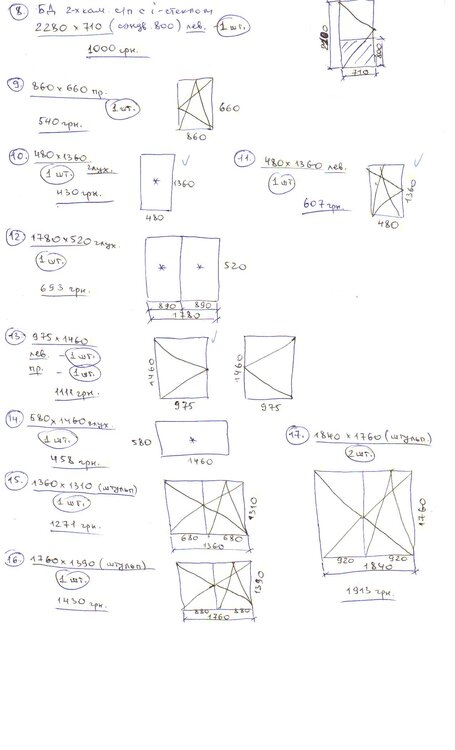 8. БД 2-х кам. с/п с i-стеклом
2280 x 710 (сэндв. 800) лев. - 1 шт.
1000 грн.
800
710
9. 860 x 660 пр.
1 шт.
540 грн.
660
860
10. 480 x 1360
1 шт. глух.
430 грн.
* 1360
480
11. 480 x 1360 лев.
1 шт.
607 грн.
1360
480
12. 1780 x 520 глух.
1 шт.
693 грн.
* * 520
890 890
1780
13. 975 x 1460
лев. - 1 шт.
пр. - 1 шт.
1111 грн.
1460
975
1460
975
14. 580 x 1460 глух.
1 шт.
458 грн.
580 *
1460
15. 1360 x 1310 (штульп)
1 шт.
1271 грн.
1310
680 680
1360
16. 1760 x 1390 (штульп)
1 шт.
1430 грн.
1390
880 880
1760
17. 1840 x 1760 (штульп.)
2 шт.
1760
920 920
1840
1913 грн.